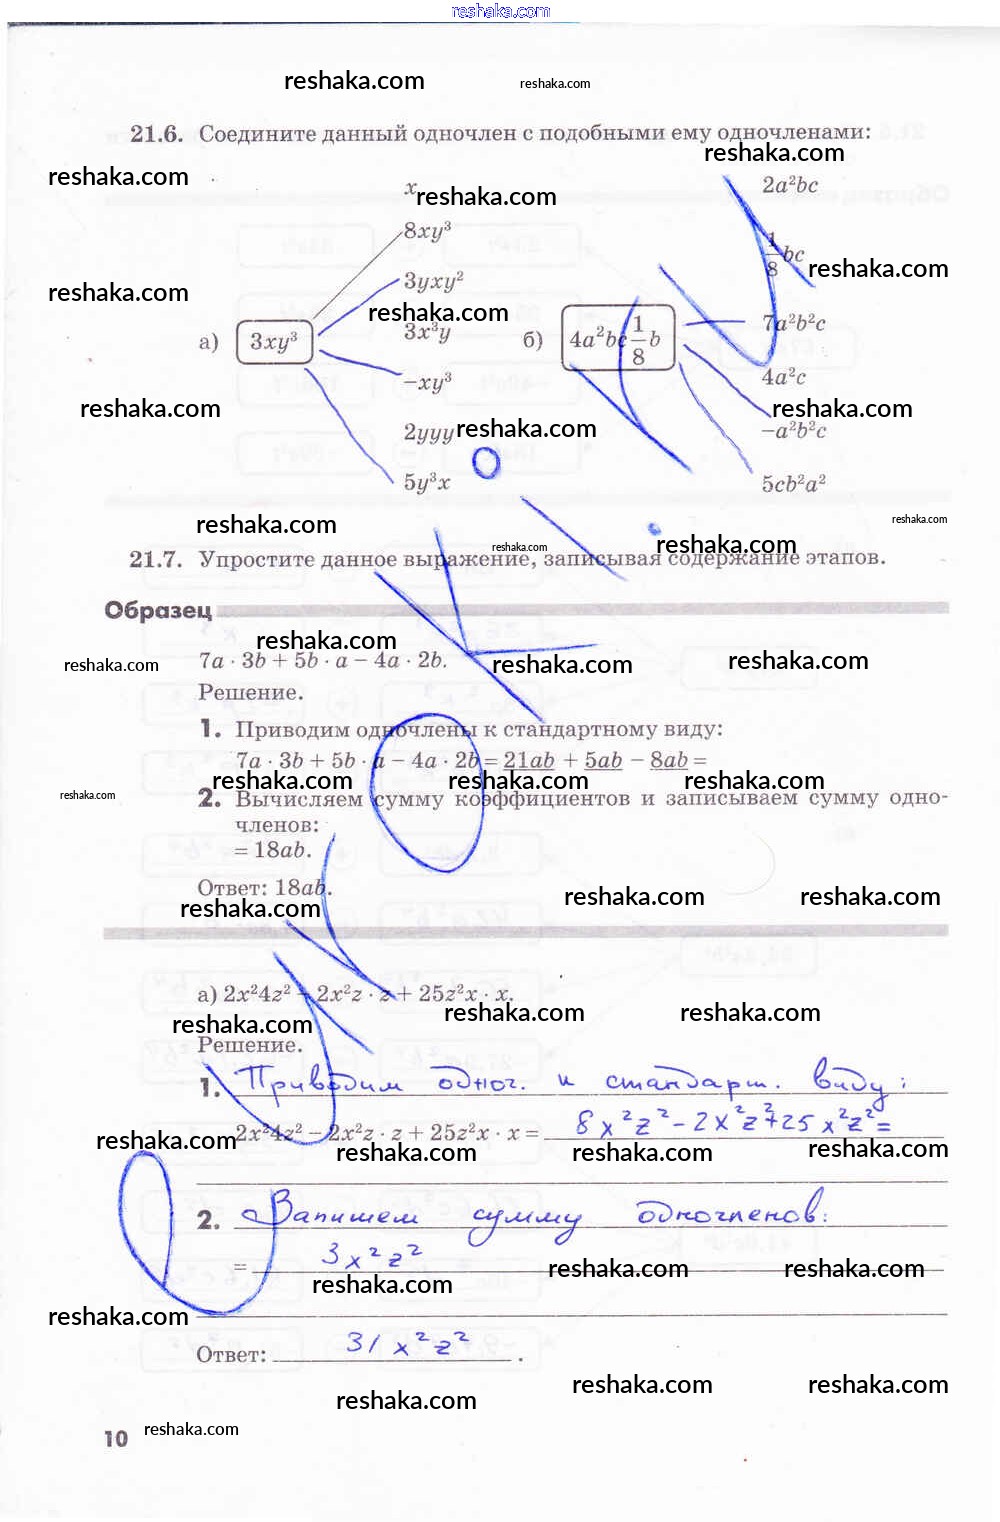 reshaka.com
reshaka.com reshaka.com
21.6. Соедините данный одночлен с подобными ему одночленами:
reshaka.com
reshaka.com
x
reshaka.com
2a²bc
8xy³
1/8 bc
reshaka.com
3yxy²
reshaka.com
reshaka.com
3x³y
7a²b²c
а) 3xy³
б) 4a²bc 1/8 b
–xy³
4a²c
reshaka.com
reshaka.com
2yyy
reshaka.com
–a²b²c
5y³x
5cb²a²
reshaka.com
reshaka.com
reshaka.com
reshaka.com
21.7. Упростите данное выражение, записывая содержание этапов.
Образец
reshaka.com
7a · 3b + 5b · a – 4a · 2b.
reshaka.com reshaka.com reshaka.com
Решение.
1. Приводим одночлены к стандартному виду:
7a · 3b + 5b · a – 4a · 2b = 21ab + 5ab – 8ab =
reshaka.com reshaka.com reshaka.com
reshaka.com
2. Вычисляем сумму коэффициентов и записываем сумму одно-
членов:
= 18ab.
Ответ: 18ab.
reshaka.com reshaka.com reshaka.com
а) 2x²4z² – 2x²z · z + 25z²x · x.
reshaka.com reshaka.com reshaka.com
Решение.
1. Приводим одноч. к стандарт. виду:
2x²4z² – 2x²z · z + 25z²x · x = 8x²z² – 2x²z² + 25x²z² =
reshaka.com reshaka.com reshaka.com reshaka.com
2. Запишем сумму одночленов:
= 3x²z²
reshaka.com reshaka.com reshaka.com
reshaka.com
Ответ: 31x²z².
reshaka.com reshaka.com reshaka.com
10 reshaka.com